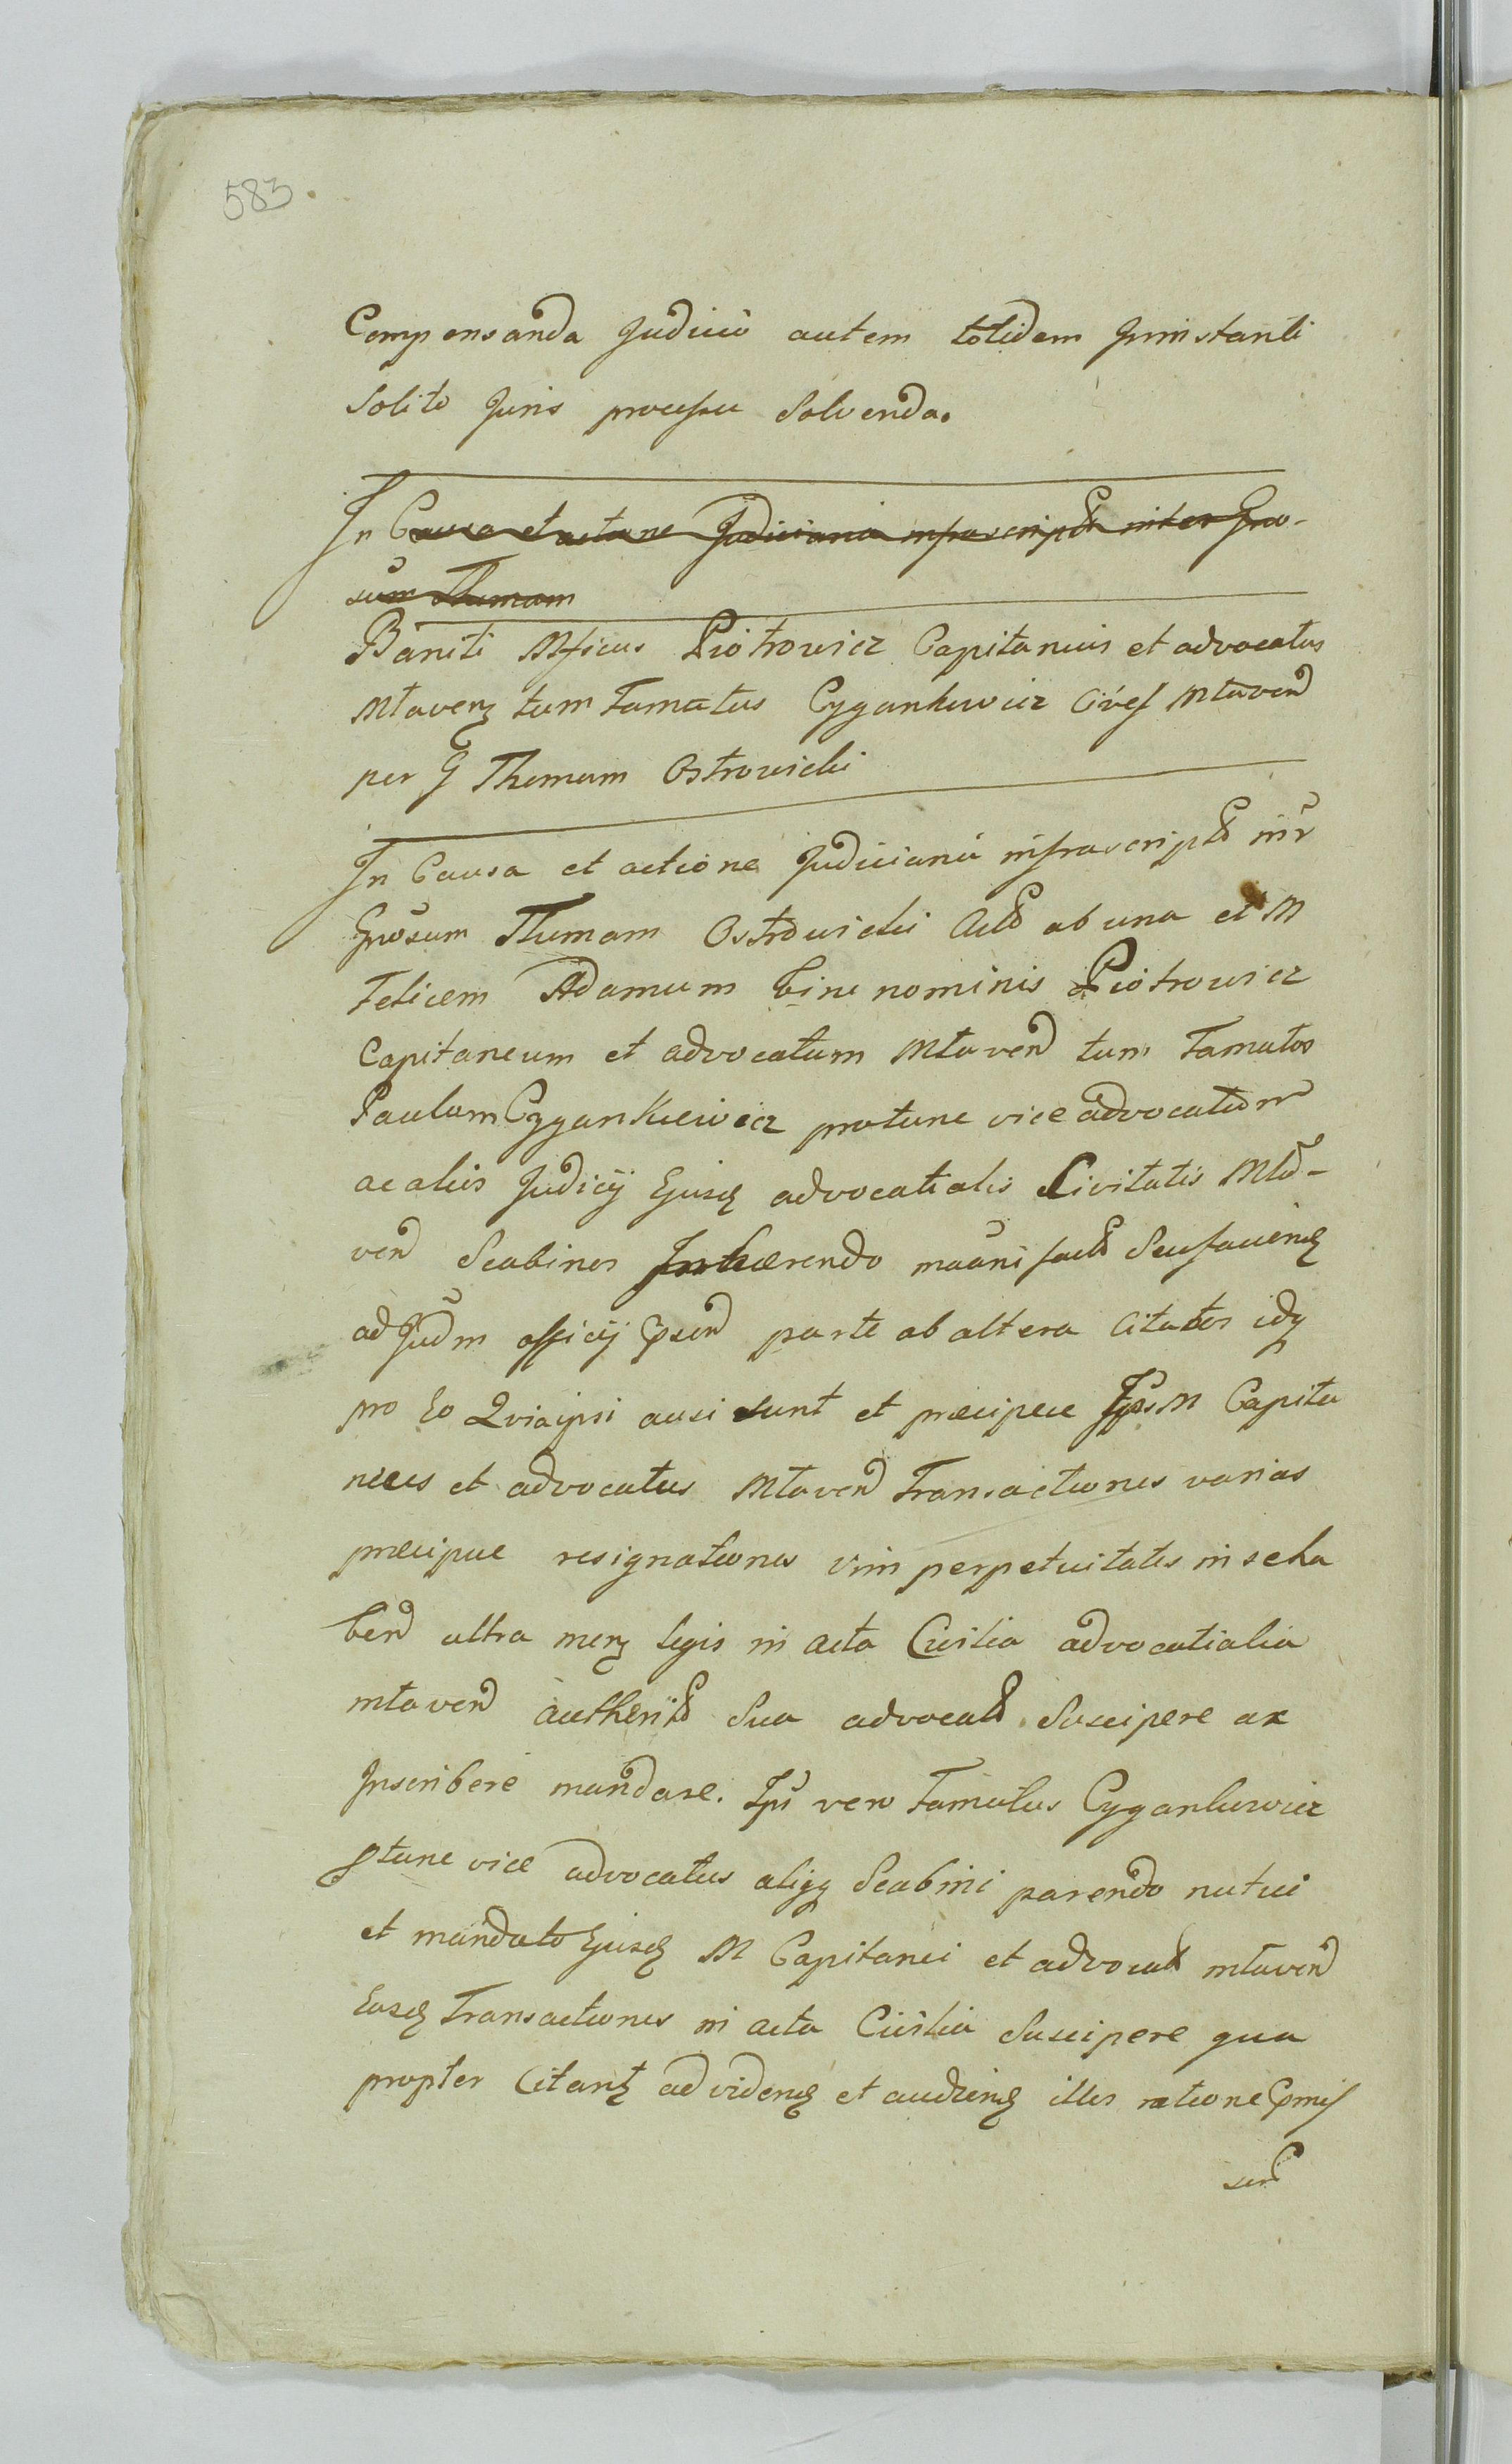 583.
Compensanda Judicio autem totidem Juri instanti
Solito Juris processu Solvenda.
In Causa et actione Judiciaria infrascripta inter Gno-
sum Thomam
Baniti Mficus Piotrowicz Capitaneus et advocatus
Mlaven tum Famatus Cygankiewicz Cives Mlaven
per G Thomam Ostrowicki
In Causa et actione Judiciaria infrascripta intr
Gnosum Thomam Ostrowicki Act ab una et M
Felicem Adamum bine nominis Piotrowicz
Capitaneum et advocatum Mlaven tum Famatos
Paulum Cygankiewicz protunc vice advocatum
ac alios Judicij Ejusd advocatialis Civitatis Mla-
ven Scabinos Inhærendo
ad Judm officij psen parte ab altera Citatos idq
pro Eo Quia ipsi ausi sunt et præcipue Ips M Capita
neus et advocatus Mlaven Transactiones varias
præcipue resignationes vim perpetuitatis in se ha
ben ultra men legis in acta Civilia advocatialia
mlaven autherit Sua advocat Suscipere ac
Inscribere mandare. Ipsi vero Famatus Cygankiewicz
ptunc vice advocatus aliq Scabini parendo nutui
et mandato Ejusd M Capitanei et advocat mlaven
Easd Transactiones in acta Civilia Suscipere qua
propter Citant ad vidend et audiend illos ratione pmis
sor